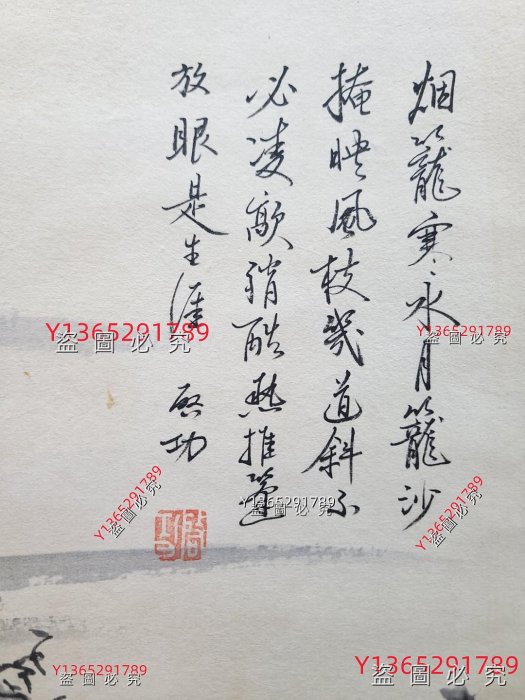 烟籠寒水月籠沙
掩映風枝幾道斜不
必凌歊消酷熱推篷
放眼是生涯 啓功
Y1365291789
盜圖必究
Y1365291789
盜圖必究
Y1365291789
盜圖必究
Y1365291789
盜圖必究
Y1365291789
盜圖必究
Y1365291789
盜圖必究
Y1365291789
盜圖必究